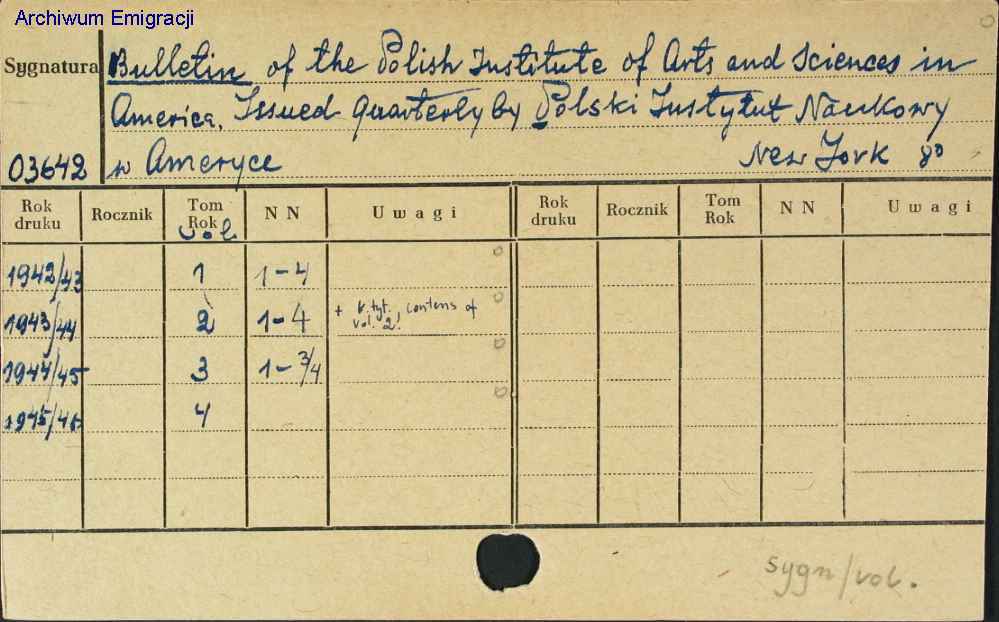 Archiwum Emigracji
Sygnatura Bulletin of the Polish Institute of Arts and Sciences in
America. Issued quarterly by Polski Instytut Naukowy
03642 w Ameryce New York 8º
Rok druku Rocznik Tom Rok NN Uwagi Rok druku Rocznik Tom Rok NN Uwagi
vol.
1942/43 1 1-4
1943/44 2 1-4 + k. tyt. contens of vol. 2!
1944/45 3 1-3/4
1945/46 4
sygn/vol.